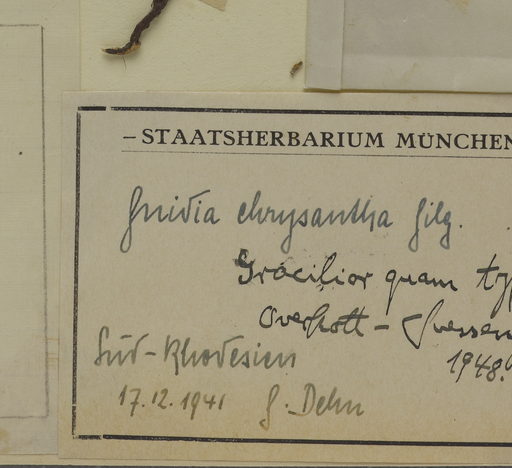 – STAATSHERBARIUM MÜNCHEN
Gnidia chrysantha Gilg.
Gracilior quam typ
Overkott – Suessen
Süd-Rhodesien
1948.
17.12.1941 G. Dehn